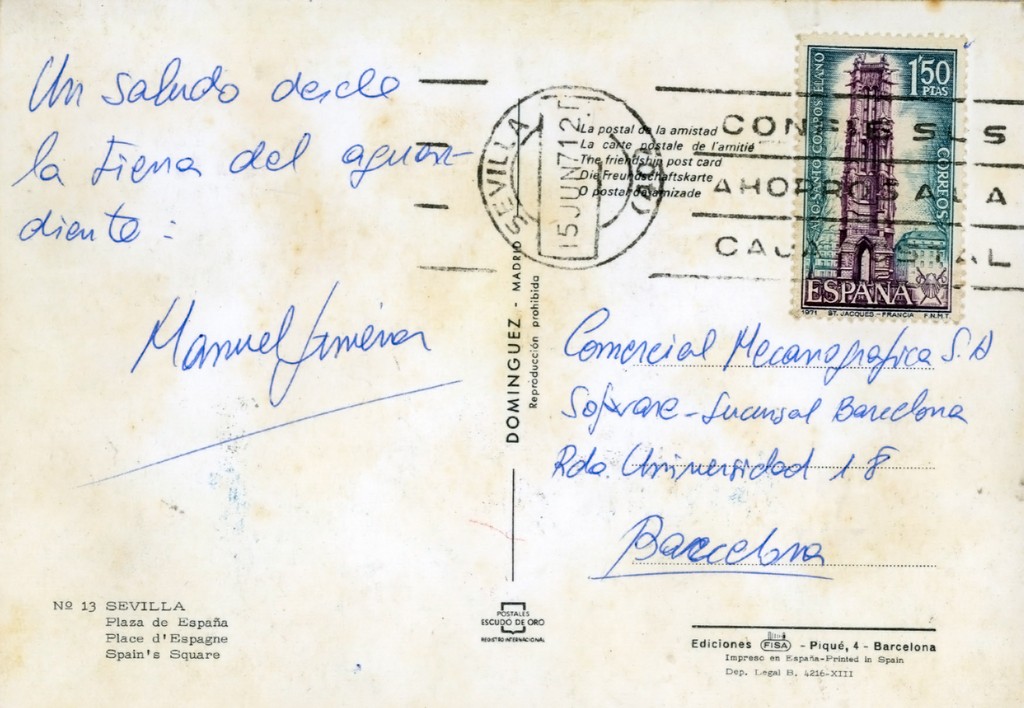 Un saludo desde
la tierra del aguar-
diente:
Manuel Jiménez
Nº 13 SEVILLA
Plaza de España
Place d'Espagne
Spain's Square
DOMINGUEZ - MADRID
Reproducción prohibida
POSTALES
ESCUDO DE ORO
REGISTRO INTERNACIONAL
SEVILLA
15 JUN 71 12.T
La postal de la amistad
La carte postale de l'amitié
The friendship post card
Die Freundschaftskarte
O postal da amizade
AHORROS A LA
CAJA POSTAL
1'50 PTAS
AÑO SANTO COMPOSTELANO
CORREOS
ESPAÑA
1971 ST. JACQUES - FRANCIA F.N.M.T.
Comercial Mecanográfica S.A
Software - Sucursal Barcelona
Rda. Universidad 18
Barcelona
Ediciones FISA - Piqué, 4 - Barcelona
Impreso en España-Printed in Spain
Dep. Legal B. 4216-XIII